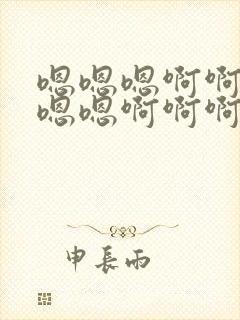 嗯嗯嗯啊啊
嗯嗯啊啊啊
申長雨